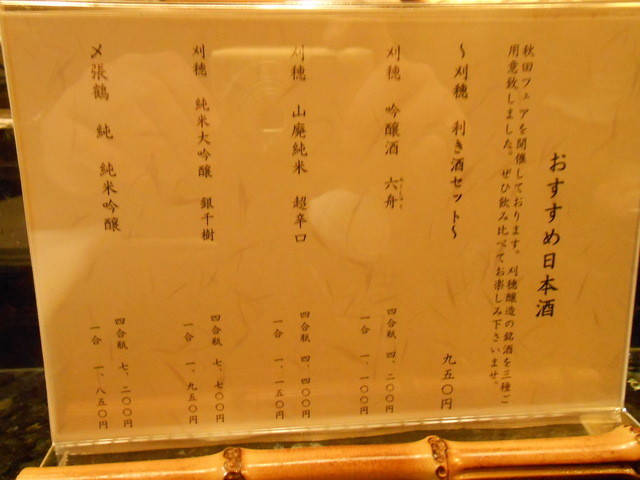 おすすめ日本酒
秋田フェアを開催しております。刈穂醸造の銘酒を三種ご
用意致しました。ぜひ飲み比べてお楽しみ下さいませ。
～刈穂 利き酒セット～ 九五〇円
刈穂 吟醸酒 六舟 四合瓶 四、二〇〇円
ろくしゅう
一合 一、一〇〇円
刈穂 山廃純米 超辛口 四合瓶 四、四〇〇円
一合 一、一五〇円
刈穂 純米大吟醸 銀千樹 四合瓶 七、七〇〇円
一合 一、九五〇円
〆張鶴 純 純米吟醸 四合瓶 七、二〇〇円
一合 一、八五〇円